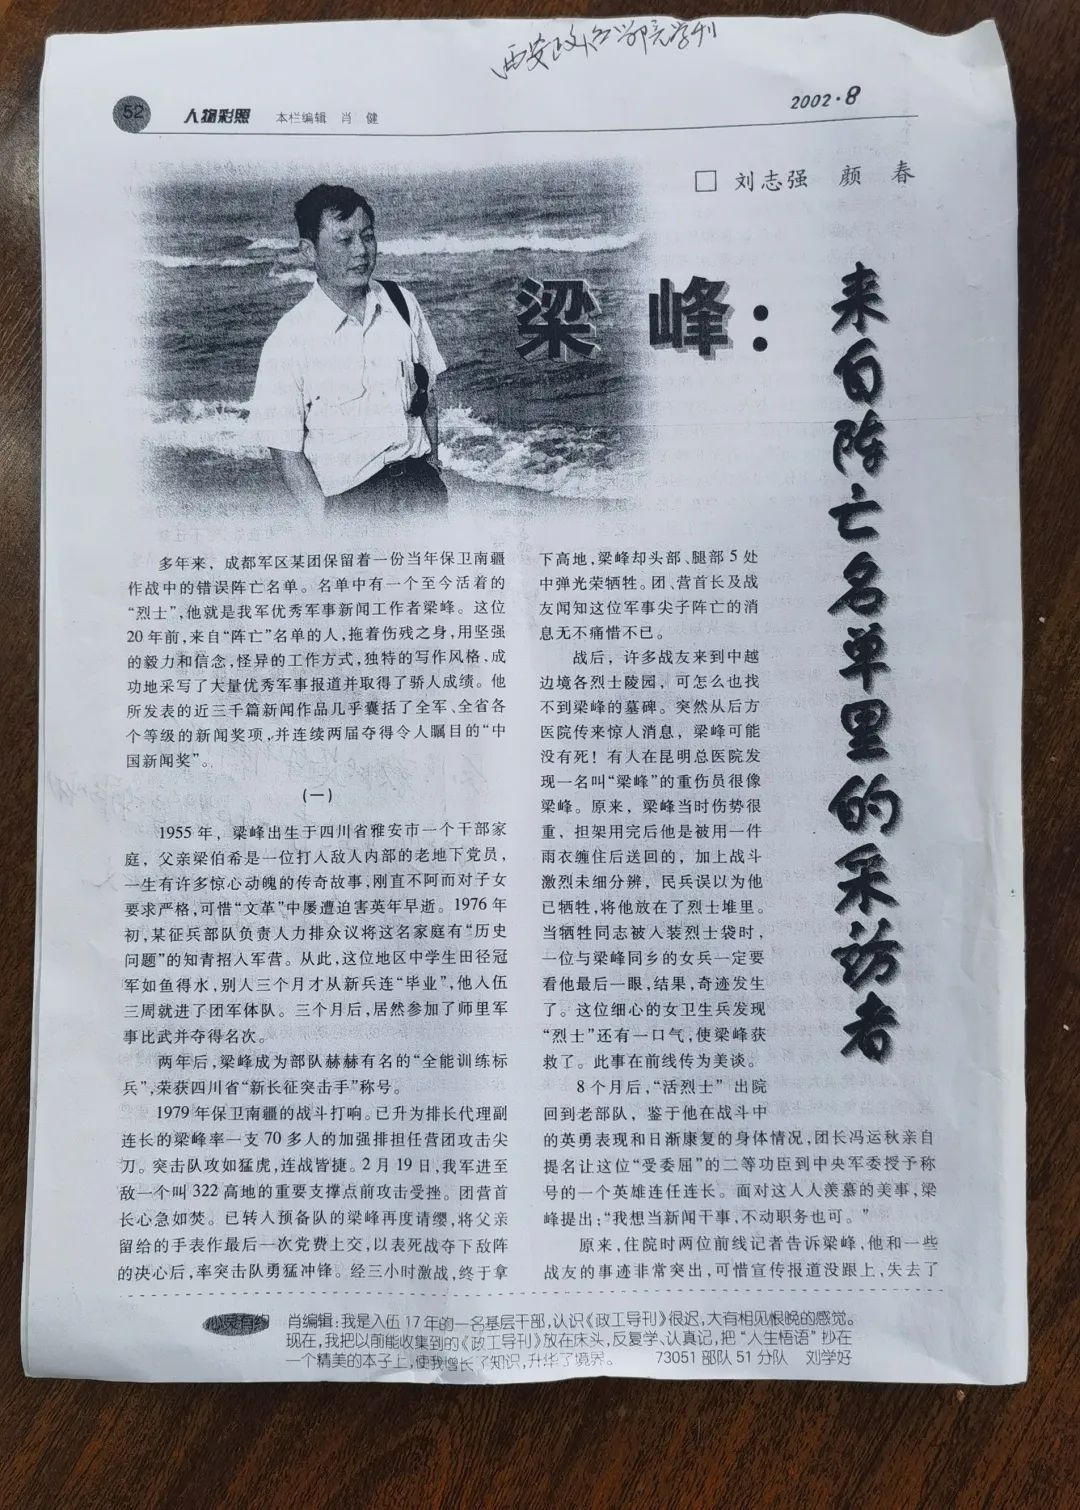 西安政治学院学刊
52 人物彩照 本栏编辑 肖 健
2002·8
□ 刘志强 颜 春
梁 峰：
来自阵亡名单里的采访者
多年来，成都军区某团保留着一份当年保卫南疆
作战中的错误阵亡名单。名单中有一个至今活着的
“烈士”，他就是我军优秀军事新闻工作者梁峰。这位
20年前，来自“阵亡”名单的人，拖着伤残之身，用坚强
的毅力和信念，怪异的工作方式，独特的写作风格，成
功地采写了大量优秀军事报道并取得了骄人成绩。他
所发表的近三千篇新闻作品几乎囊括了全军、全省各
个等级的新闻奖项，并连续两届夺得令人瞩目的“中
国新闻奖”。
(一)
1955年，梁峰出生于四川省雅安市一个干部家
庭，父亲梁伯希是一位打入敌人内部的老地下党员，
一生有许多惊心动魄的传奇故事，刚直不阿而对子女
要求严格，可惜“文革”中屡遭迫害英年早逝。1976年
初，某征兵部队负责人力排众议将这名家庭有“历史
问题”的知青招入军营。从此，这位地区中学生田径冠
军如鱼得水，别人三个月才从新兵连“毕业”，他入伍
三周就进了团军体队。三个月后，居然参加了师里军
事比武并夺得名次。
两年后，梁峰成为部队赫赫有名的“全能训练标
兵”，荣获四川省“新长征突击手”称号。
1979年保卫南疆的战斗打响。已升为排长代理副
连长的梁峰率一支70多人的加强排担任营团攻击尖
刀。突击队攻如猛虎，连战皆捷。2月19日，我军进至
敌一个叫322高地的重要支撑点前攻击受挫。团营首
长心急如焚。已转入预备队的梁峰再度请缨，将父亲
留给的手表作最后一次党费上交，以表死战夺下敌阵
的决心后，率突击队勇猛冲锋。经三小时激战，终于拿
下高地，梁峰却头部、腿部5处
中弹光荣牺牲。团、营首长及战
友闻知这位军事尖子阵亡的消
息无不痛惜不已。
战后，许多战友来到中越
边境各烈士陵园，可怎么也找
不到梁峰的墓碑。突然从后方
医院传来惊人消息，梁峰可能
没有死！有人在昆明总医院发
现一名叫“梁峰”的重伤员很像
梁峰。原来，梁峰当时伤势很
重，担架用完后他是被用一件
雨衣缠住后送回的，加上战斗
激烈未细分辨，民兵误以为他
已牺牲，将他放在了烈士堆里。
当牺牲同志被入装烈士袋时，
一位与梁峰同乡的女兵一定要
看他最后一眼，结果，奇迹发生
了。这位细心的女卫生兵发现
“烈士”还有一口气，使梁峰获
救了。此事在前线传为美谈。
8个月后，“活烈士”出院
回到老部队，鉴于他在战斗中
的英勇表现和日渐康复的身体情况，团长冯运秋亲自
提名让这位“受委屈”的二等功臣到中央军委授予称
号的一个英雄连任连长。面对这人人羡慕的美事，梁
峰提出：“我想当新闻干事，不动职务也可。”
原来，住院时两位前线记者告诉梁峰，他和一些
战友的事迹非常突出，可惜宣传报道没跟上，失去了
心灵有约 肖编辑：我是入伍17年的一名基层干部，认识《政工导刊》很迟，大有相见恨晚的感觉。
现在，我把以前能收集到的《政工导刊》放在床头，反复学、认真记，把“人生悟语”抄在
一个精美的本子上，使我增长了知识，升华了境界。 73051部队51分队 刘学好